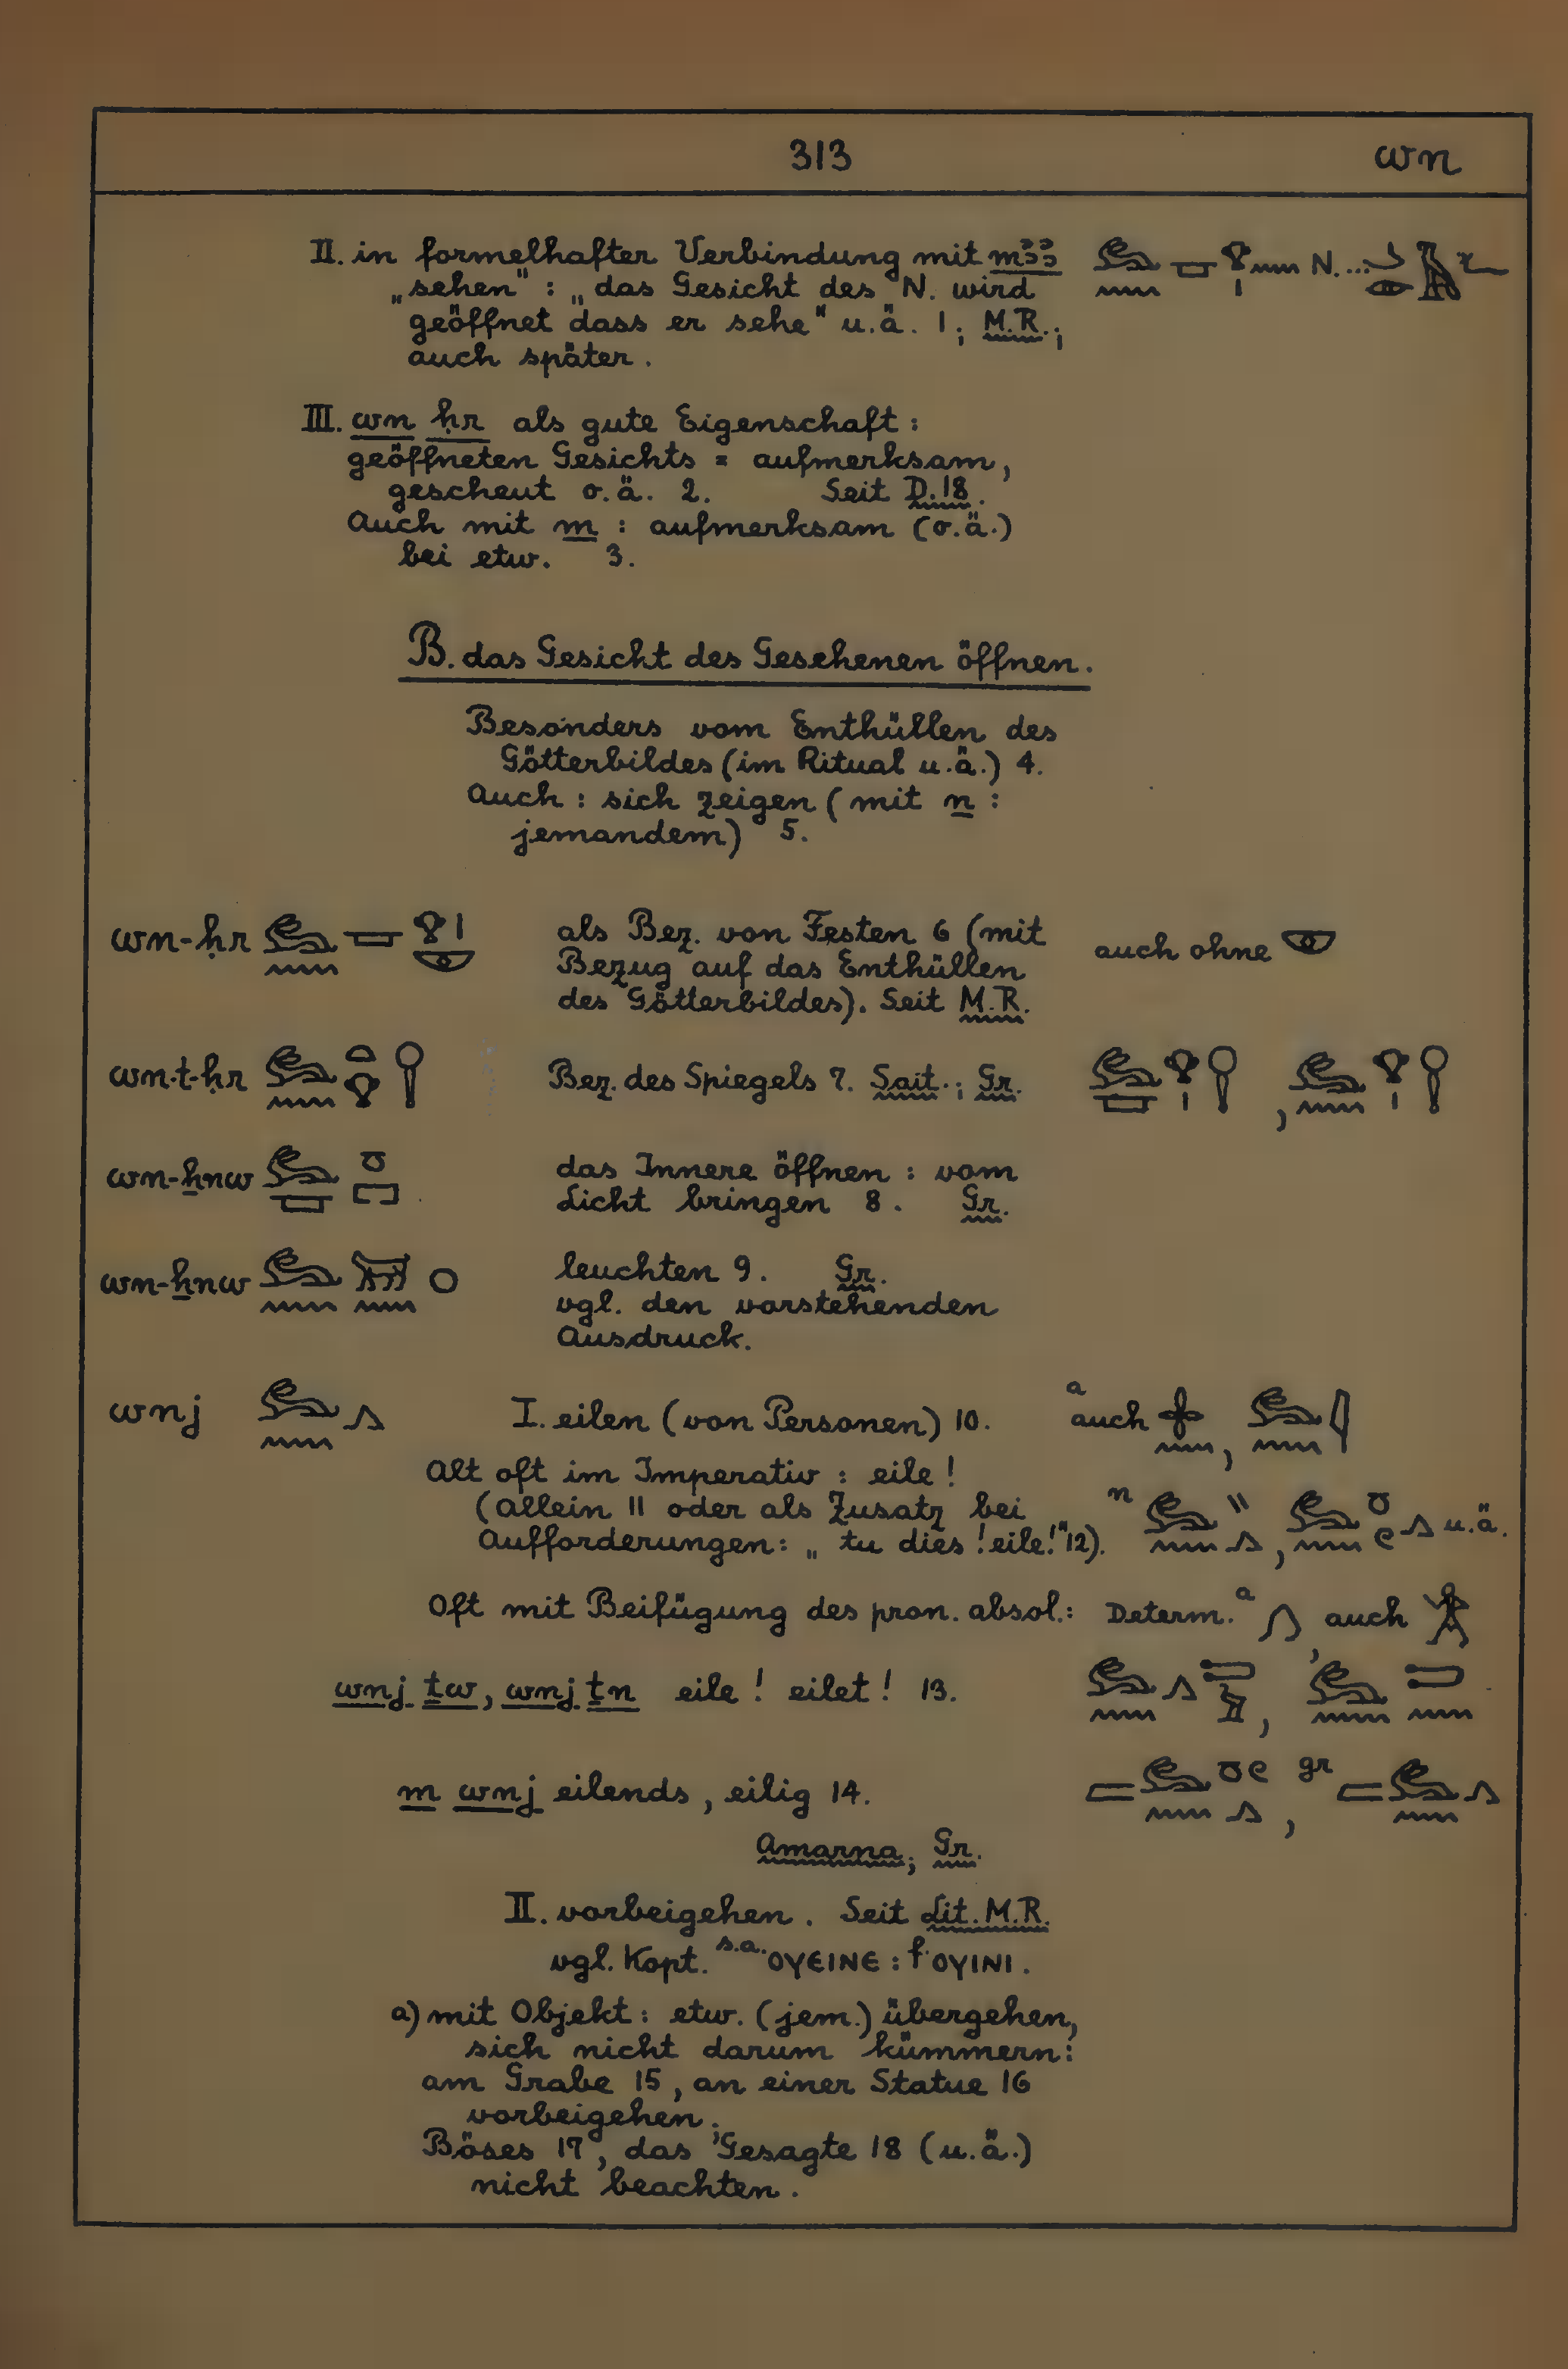 313
wn
II. in formelhafter Verbindung mit mꜣꜣ
„sehen“ : „das Gesicht des N. wird
geöffnet dass er sehe“ u.ä. 1; M.R.;
auch später.
III. wn ḥr als gute Eigenschaft:
geöffneten Gesichts = aufmerksam,
gescheut o.ä. 2. Seit D.18.
Auch mit m : aufmerksam (o.ä.)
bei etw. 3.
B. das Gesicht des Gesehenen öffnen.
Besonders vom Enthüllen des
Götterbildes (im Ritual u.ä.) 4.
Auch : sich zeigen (mit n :
jemandem) 5.
wn-ḥr als Bez. von Festen 6 (mit auch ohne
Bezug auf das Enthüllen
des Götterbildes). Seit M.R.
wn·t-ḥr Bez. des Spiegels 7. Sait.; Gr.
wn-ẖnw das Innere öffnen : vom
Licht bringen 8. Gr.
wn-ẖnw leuchten 9. Gr.
vgl. den vorstehenden
Ausdruck.
wnj I. eilen (von Personen) 10. a auch
Alt oft im Imperativ : eile!
(allein 11 oder als Zusatz bei n
Aufforderungen: „tu dies! eile!“ 12). u.ä.
Oft mit Beifügung des pron. absol.: Determ. a , auch
wnj ṯw, wnj ṯn eile! eilet! 13.
m wnj eilends, eilig 14. gr
Amarna; Gr.
II. vorbeigehen. Seit Lit. M.R.
vgl. Kopt. s.a. ⲟⲩⲉⲓⲛⲉ : f. ⲟⲩⲓⲛⲓ.
a) mit Objekt: etw. (jem.) übergehen,
sich nicht darum kümmern:
am Grabe 15, an einer Statue 16
vorbeigehen;
Böses 17, das Gesagte 18 (u.ä.)
nicht beachten.